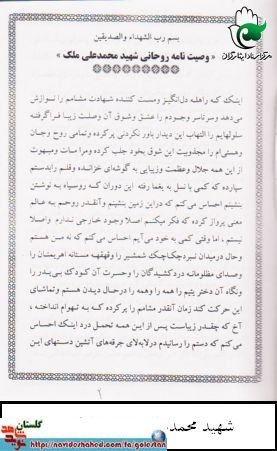 مرکز اسناد ایثارگران
بسم رب الشهداء والصدیقین
« وصیت نامه روحانی شهید محمدعلی ملک »
اینک که راهله دل‌انگیز ومست کننده شهادت مشامم را نوازش
می‌دهد وسرتاسر وجودم را عشق وشوق آن وصلت زیبا فرا گرفته
سلولهایم را التهاب این دیدار باور نکردنی پرکرده وتمامی روح وجان
وهستی‌ام را مجذوبیت این شوق بخود جلب کرده ومرا مات ومبهوت
از این همه جلال وعظمت وزیبایی به گوشه‌ای خزانده وقلم رابدستم
سپارده که کمی با نسل به یغما رفته این دوران که روسیاه به نوشتن
بنشینم احساس می‌کنم که دراین زمین بنشینم وآنقدر روحم به عالم
معنی پرواز کرده که فکر میکنم اصلا وجود خارجی ندارم واصلا
نیستم ، اما وقتی کمی به خود می‌آیم احساس می‌کنم که نه من هستم
وحال درمیدان نبردچکاچک شمشیر را وقهقهه مستانه اهریمنان را
وصدای مظلومانه دردکشیدگان را وحسرت آن کودک بی‌پدر را
ونگاه آن دختر یتیم را همه را وهمه را درحال دیدن هستم وتماشای
این حرکت کند زمان آنقدر مشامم را پرکرده که به تهوام انداخته ،
آخ که چقدر زیباست پس از این همه تحمل درد اینک احساس
می‌کنم که دستم را رسانیدم درلابه‌لای جرقه‌های آتشین دستهای این
۱
شهید محمد
گلستان
نوید شاهد
https://navideshahed.com/fa/golestan